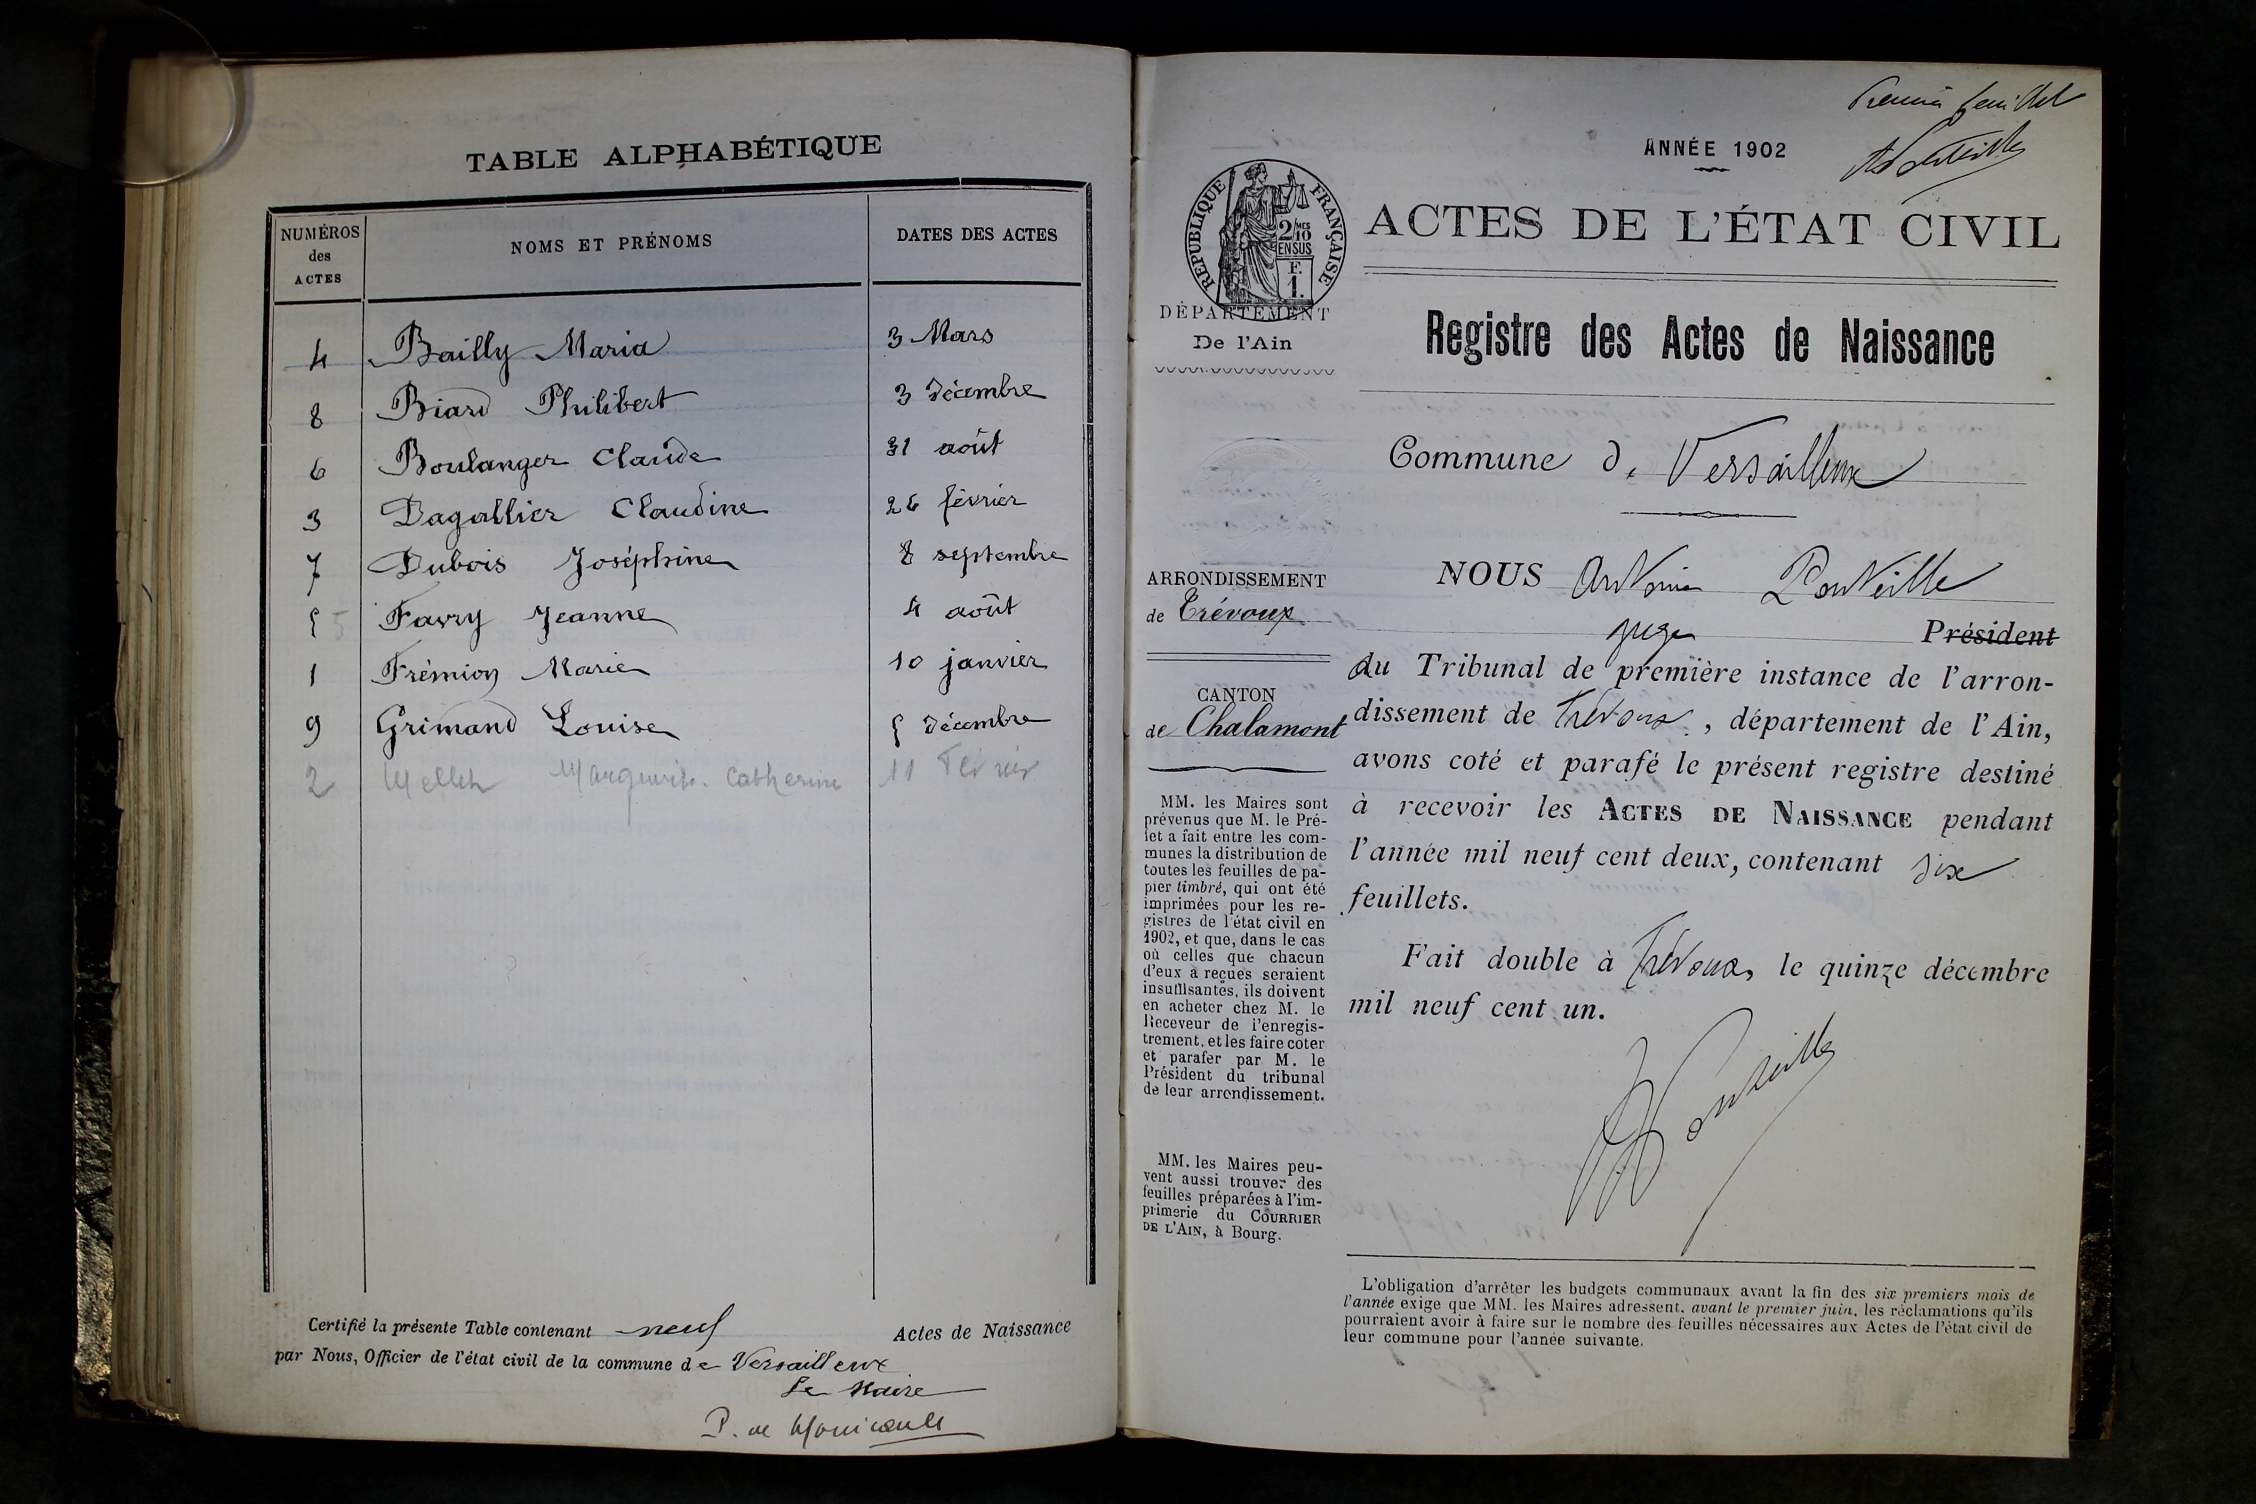 TABLE ALPHABÉTIQUE
NUMÉROS des ACTES NOMS ET PRÉNOMS DATES DES ACTES
4 Bailly Maria 3 Mars
8 Biard Philibert 3 Décembre
6 Boulanger Claude 31 août
3 Dagallier Claudine 26 février
7 Dubois Joséphine 8 septembre
5 5 Favry Jeanne 4 août
1 Frémion Marie 10 janvier
9 Grimand Louise 5 Décembre
2 Marguerite Catherine 11 Février
Certifié la présente Table contenant neuf Actes de Naissance
par Nous, Officier de l'état civil de la commune de Versailleux
Le Maire
P. de Monicault
Premier feuillet
A Ponteille
ANNÉE 1902
RÉPUBLIQUE FRANÇAISE
2/10 MES
EN SUS
F.
1.
ACTES DE L'ÉTAT CIVIL
DÉPARTEMENT
De l'Ain
Registre des Actes de Naissance
Commune de Versailleux
ARRONDISSEMENT
de Trévoux
CANTON
de Chalamont
MM. les Maires sont
prévenus que M. le Pré-
fet a fait entre les com-
munes la distribution de
toutes les feuilles de pa-
pier timbré, qui ont été
imprimées pour les re-
gistres de l'état civil en
1902, et que, dans le cas
où celles que chacun
d'eux a reçues seraient
insuffisantes, ils doivent
en acheter chez M. le
Receveur de l'enregis-
trement, et les faire coter
et parafer par M. le
Président du tribunal
de leur arrondissement.
MM. les Maires peu-
vent aussi trouver des
feuilles préparées à l'im-
primerie du COURRIER
DE L'AIN, à Bourg.
NOUS Antonin Ponteille
juge Président
du Tribunal de première instance de l'arron-
dissement de Trévoux, département de l'Ain,
avons coté et parafé le présent registre destiné
à recevoir les ACTES DE NAISSANCE pendant
l'année mil neuf cent deux, contenant six
feuillets.
Fait double à Trévoux, le quinze décembre
mil neuf cent un.
A Ponteille
L'obligation d'arrêter les budgets communaux avant la fin des six premiers mois de
l'année exige que MM. les Maires adressent, avant le premier juin, les réclamations qu'ils
pourraient avoir à faire sur le nombre des feuilles nécessaires aux Actes de l'état civil de
leur commune pour l'année suivante.